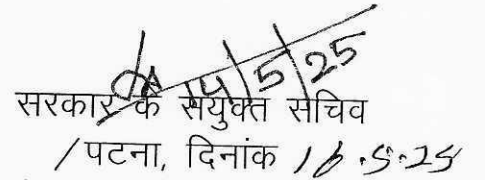 14/5/25
सरकार के संयुक्त सचिव
/पटना, दिनांक 16.5.25